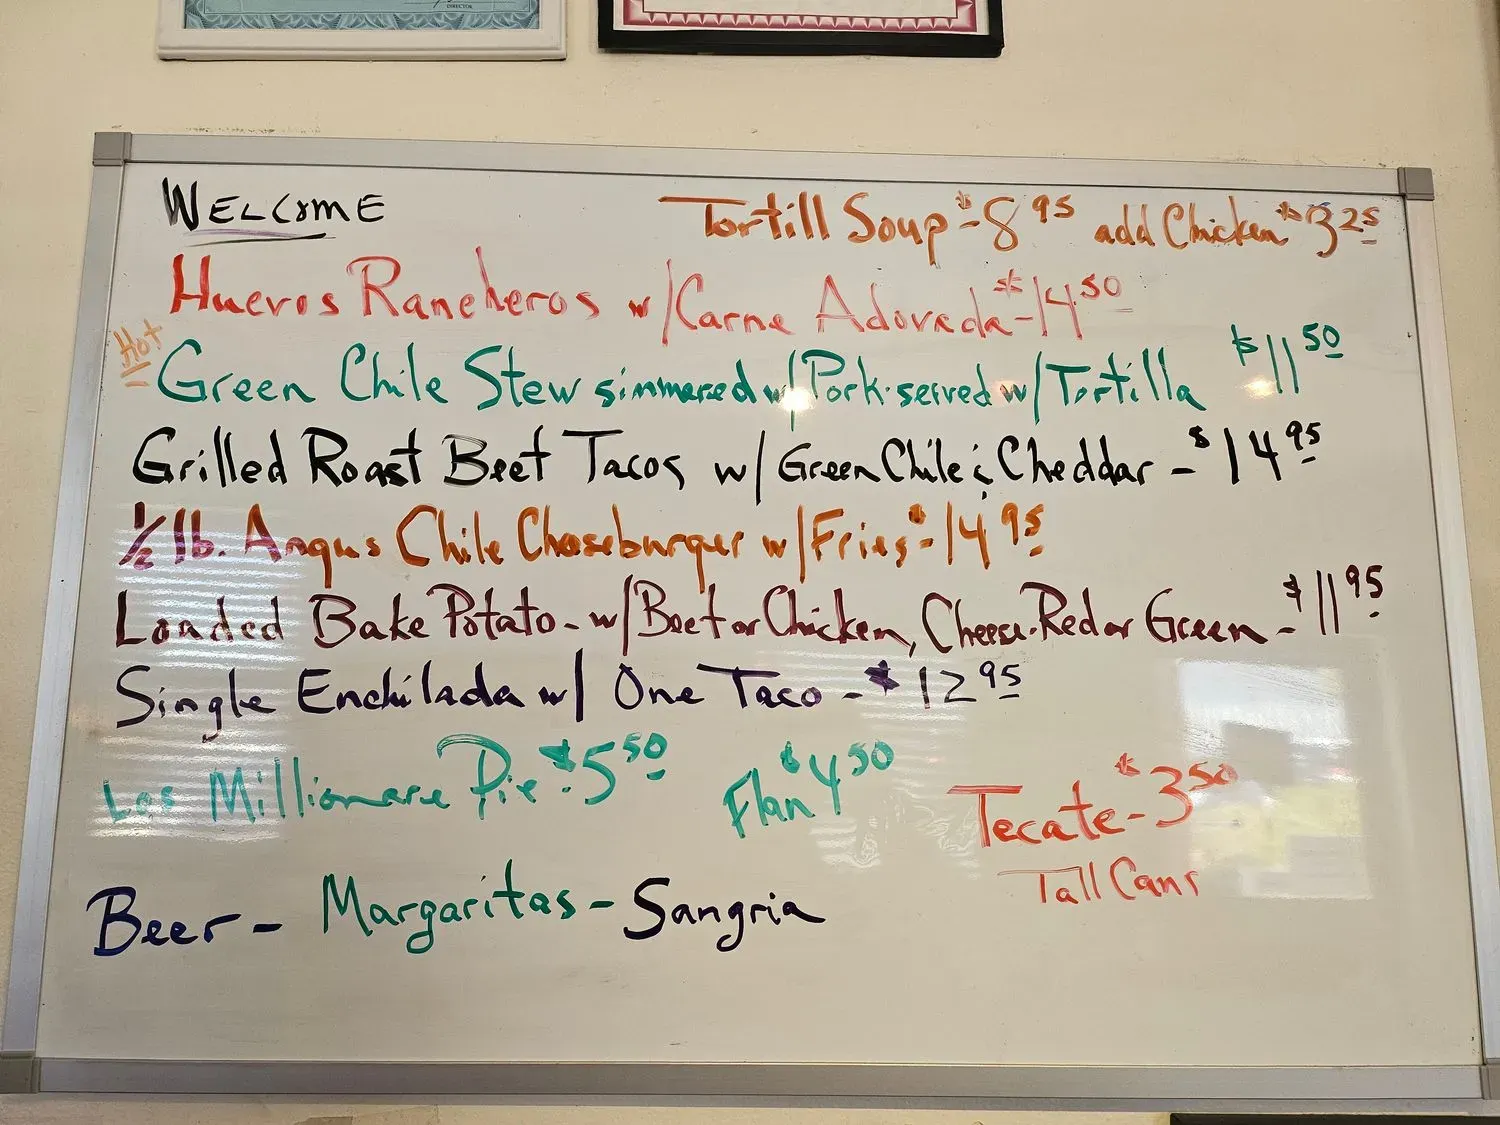 DIRECTOR
WELCOME
Tortill Soup - $8.95 add Chicken $3.25
Hueros Rancheros w/Carne Adovada - $14.50
Hot
Green Chile Stew simmered w/Pork - served w/Tortilla $11.50
Grilled Roast Beef Tacos w/Green Chile & Cheddar - $14.95
1/2 lb. Angus Chile Cheeseburger w/Fries - $14.95
Loaded Bake Potato - w/Beef or Chicken, Cheese - Red or Green - $11.95
Single Enchilada w/ One Taco - $12.95
Los Millionare Pie - $5.50
Flan $4.50
Tecate - $3.50
Tall Cans
Beer - Margaritas - Sangria